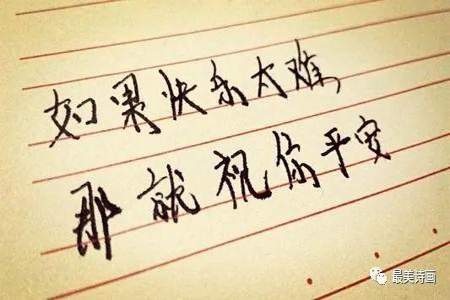 如果快乐太难
那就祝你平安
最美诗画